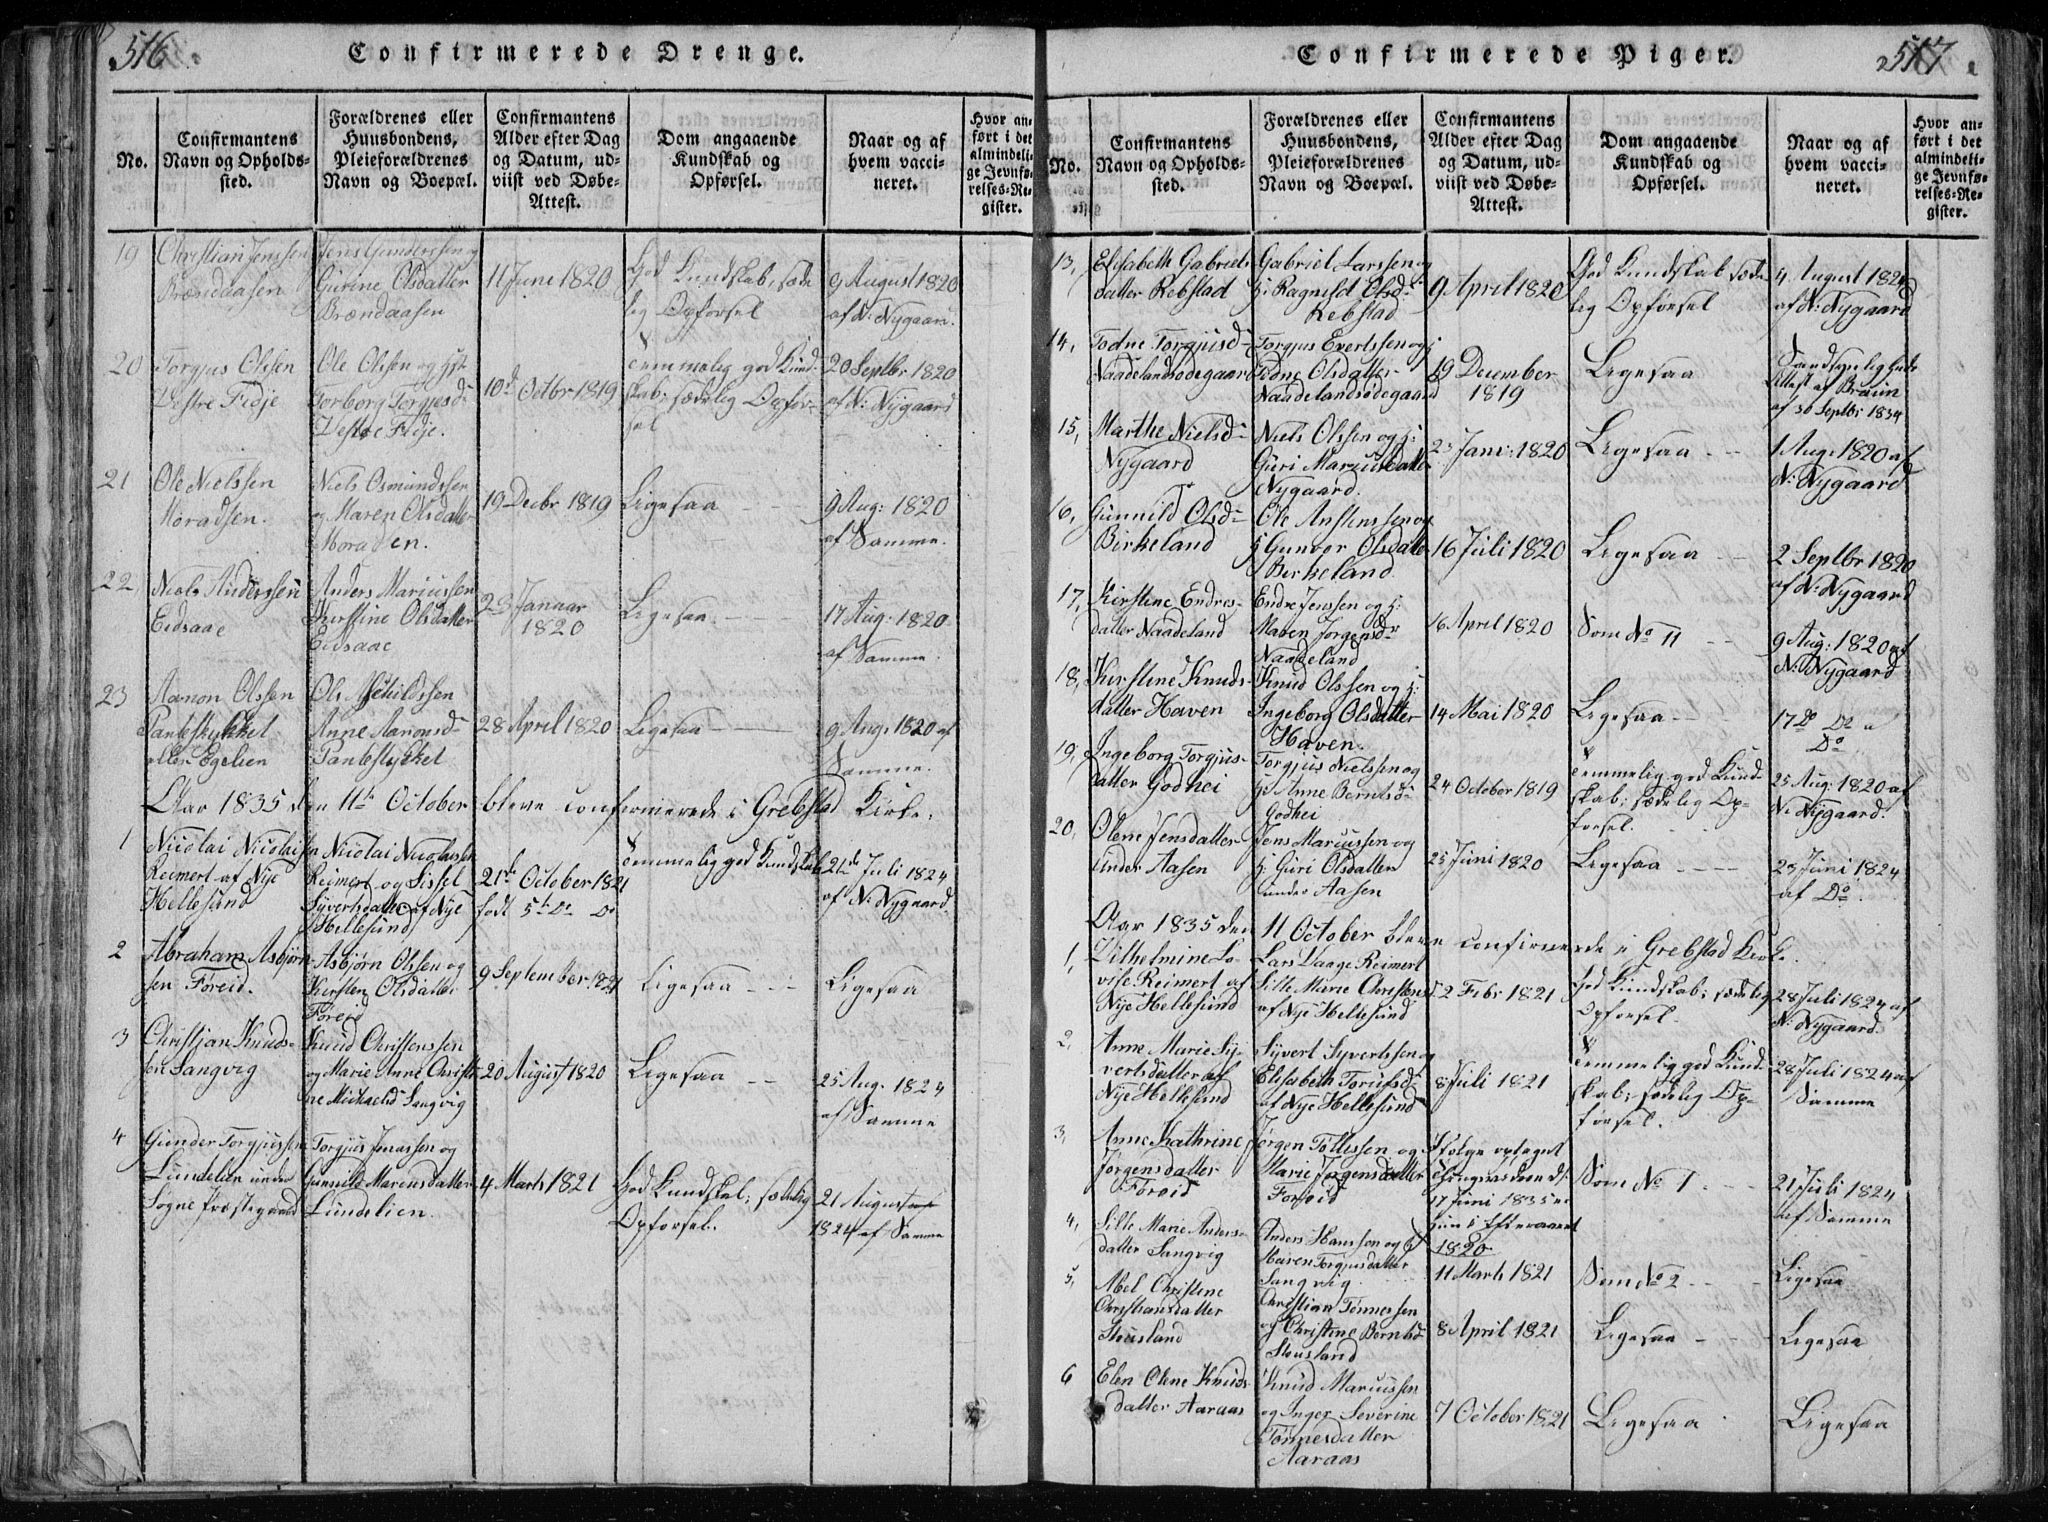 516.
Confirmerede Drenge.
No.
Confirmantens
Navn og Opholds-
sted.
Forældrenes eller
Huusbondens,
Pleieforældrenes
Navn og Boepæl.
Confirmantens
Alder efter Dag
og Datum, ud-
viist ved Døbe-
Attest.
Dom angaaende
Kundskab og
Opførsel.
Naar og af
hvem vacci-
neret.
Hvor an-
ført i det
almindeli-
ge Jevnfø-
relses-Re-
gister.
19
Christian Jenssen
Brændaasen
Jens Gunderssen og
Gurine Olsdatter
Brændaasen
11 Juni 1820
God Kundskab, sæde
lig Opførsel
9 August 1820
af N: Nygaard.
20
Torgjus Olssen
Vestre Fidje
Ole Olssen og
Torborg Torgjusd-
Vestre Fidje.
10de Octbr 1819
Temmelig god Kund-
skab; sædelig Opfør-
sel
20 Septbr 1820
af N: Nygaard
21
Ole Nielssen
Moradsen.
Niels Osmundssen
og Maren Olsdatter
Moraden.
19 Decbr 1819
Ligesaa
9 Aug: 1820
af Samme.
22
Niels Anderssen
Eidsaae
Anders Mariussen
Kirstine Olsdatter
Eidsaae
23 Januar
1820
Ligesaa
17 Aug: 1820
af Samme.
23
Aanon Olssen
Pantestykket
eller Egelien
Ole
Anne Aanonsd
Pantestykket
28 April 1820
Ligesaa
9 Aug: 1820 af
Samme.
Aar 1835 den 11te October bleve confirmerede i Grebstad Kirke.
1
Nicolai Nicolaisen
Reimert af Nye
Hellesund
Nicolai Nicolaissen
Reimert og Sissel
Syvertsdatter af Nye
Hellesund
21de October 1821
født 5te Do Do
Temmelig god Kundskab
21de Juli 1824
af N: Nygaard.
2
Abraham Asbjørn-
sen Føreid.
Asbjørn Olssen og
Kirsten Olsdatter
Føreid
9 September 1821
Ligesaa
Ligesaa
3
Christian Knuds-
sen Langvig
Knud Christenssen
og Marie Anne Christi-
ne Michaelsd Langvig
20 August 1820
Ligesaa
25 Aug: 1824
af Samme
4
Gunder Torgjussen
Lundelien under
Søgne Præstegaard
Torgjus Jonassen og
Gunnild Mariusdatter
Lundelien.
4 Marts 1821
God Kundskab; sædelig
Opførsel.
21 August
1824 af Samme
517.
Confirmerede Piger.
No.
Confirmantens
Navn og Opholds-
sted.
Forældrenes eller
Huusbondens,
Pleieforældrenes
Navn og Boepæl.
Confirmantens
Alder efter Dag
og Datum, ud-
viist ved Døbe-
Attest.
Dom angaaende
Kundskab og
Opførsel.
Naar og af
hvem vacci-
neret.
Hvor an-
ført i det
almindeli-
ge Jevnfø-
relses-Re-
gister.
13,
Elisabeth Gabriels-
datter Rebstad
Gabriel Larssen og
H: Ragnild Olsd-
Rebstad
9 April 1820
God Kundskab sæde
lig Opførsel
4 August 1820
af N: Nygaard
14,
Todne Torgjusd-
Naadelandsødegaard
Torgjus Evertssen og H
Todne Olsdatter
Naadelandsødegaard
19 December
1819
Ligesaa
Attest af Bruun
af 30 Septbr 1834
15,
Marthe Nielsd-
Nygaard
Niels Olssen og H:
Guri Mariusdatter
Nygaard.
23 Jani: 1820
Ligesaa
1 Aug: 1820 af
N: Nygaard
16,
Gunnild Olsd-
Birkeland
Ole Anstenssen og
H Gunvor Olsdatter
Birkeland
16 Juli 1820
Ligesaa
2 Septbr 1820
af N: Nygaard
17,
Kirstine Endres-
datter Naadeland
Endre Jenssen og H:
Maren Jørgensdr
Naadeland
16 April 1820
Som No 11
9 Aug: 1820 af
N: Nygaard
18,
Kirstine Knuds-
datter Haven
Knud Olssen og H:
Ingeborg Olsdatter
Haven.
14 Mai 1820
Ligesaa
17 Do Do a
Do
19,
Ingeborg Torgjus-
datter Godhei
Torgjus Nielssen og
H: Anne Berntsd-
Godhei
24 October 1819
Temmelig god Kund-
skab; sædelig Op-
førsel.
25 Aug: 1820 af
N: Nygaard.
20,
Olene Jensdatter
under Aasen
Jens Marcussen og
H: Guri Olsdatter
under Aasen
25 Juni 1820
Ligesaa
23 Juni 1824
af Do
Aar 1835 den 11 October bleve confirmerede i Grebstad Kirke.
1,
Vilhelmine Lo-
vise Reimert af
Nye Hellesund
Lars Vaage Reimert
Sille Marie Christensd
af Nye Hellesund
2 Febr 1821
God Kundskab; sædelig
Opførsel.
28 Juli 1824 af
N: Nygaard.
2,
Anne Marie Sy-
vertsdatter af
Nye Hellesund
Syvert Syvertssen og
Elisabeth Torufsd-
af Nye Hellesund
8 Juli 1821
Temmelig god Kund-
skab; sædelig Op-
førsel.
28 Juli 1824 af
Samme
3,
Anne Kathrine
Jørgensdatter
Føreid
Jørgen Tollissen og
Marie Jørgensdatter
Føreid
Ifølge optaget
Thingsvidne af
17 Juni 1835 er
hun i Efteraaret
1820
Som No 1
21 Juli 1824
af Samme
4,
Sille Marie Anders-
datter Langvig
Anders Hanssen og H
Maren Torgjusdatter
Langvig
11 Marts 1821
Som No 2
Ligesaa
5,
Abel Christine
Christiansdatter
Stousland
Christian Tønnessen
og Christine Berntsd-
Stousland
8 April 1821
Ligesaa
Ligesaa
6
Elen Olene Knuds
datter Aaraas
Knud Marcussen
og Inger Severine
Tønnesdatter
Aaraas
7 October 1821
Ligesaa
Ligesaa